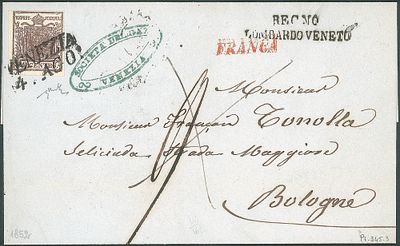 VENEZIA
4. AGO.
SOCIETÀ
VENEZIA
REGNO
LOMBARDO VENETO
FRANCA
Monsieur
Monsieur François Tonolla
Seliciada Strada Maggiore
Bologne
1852